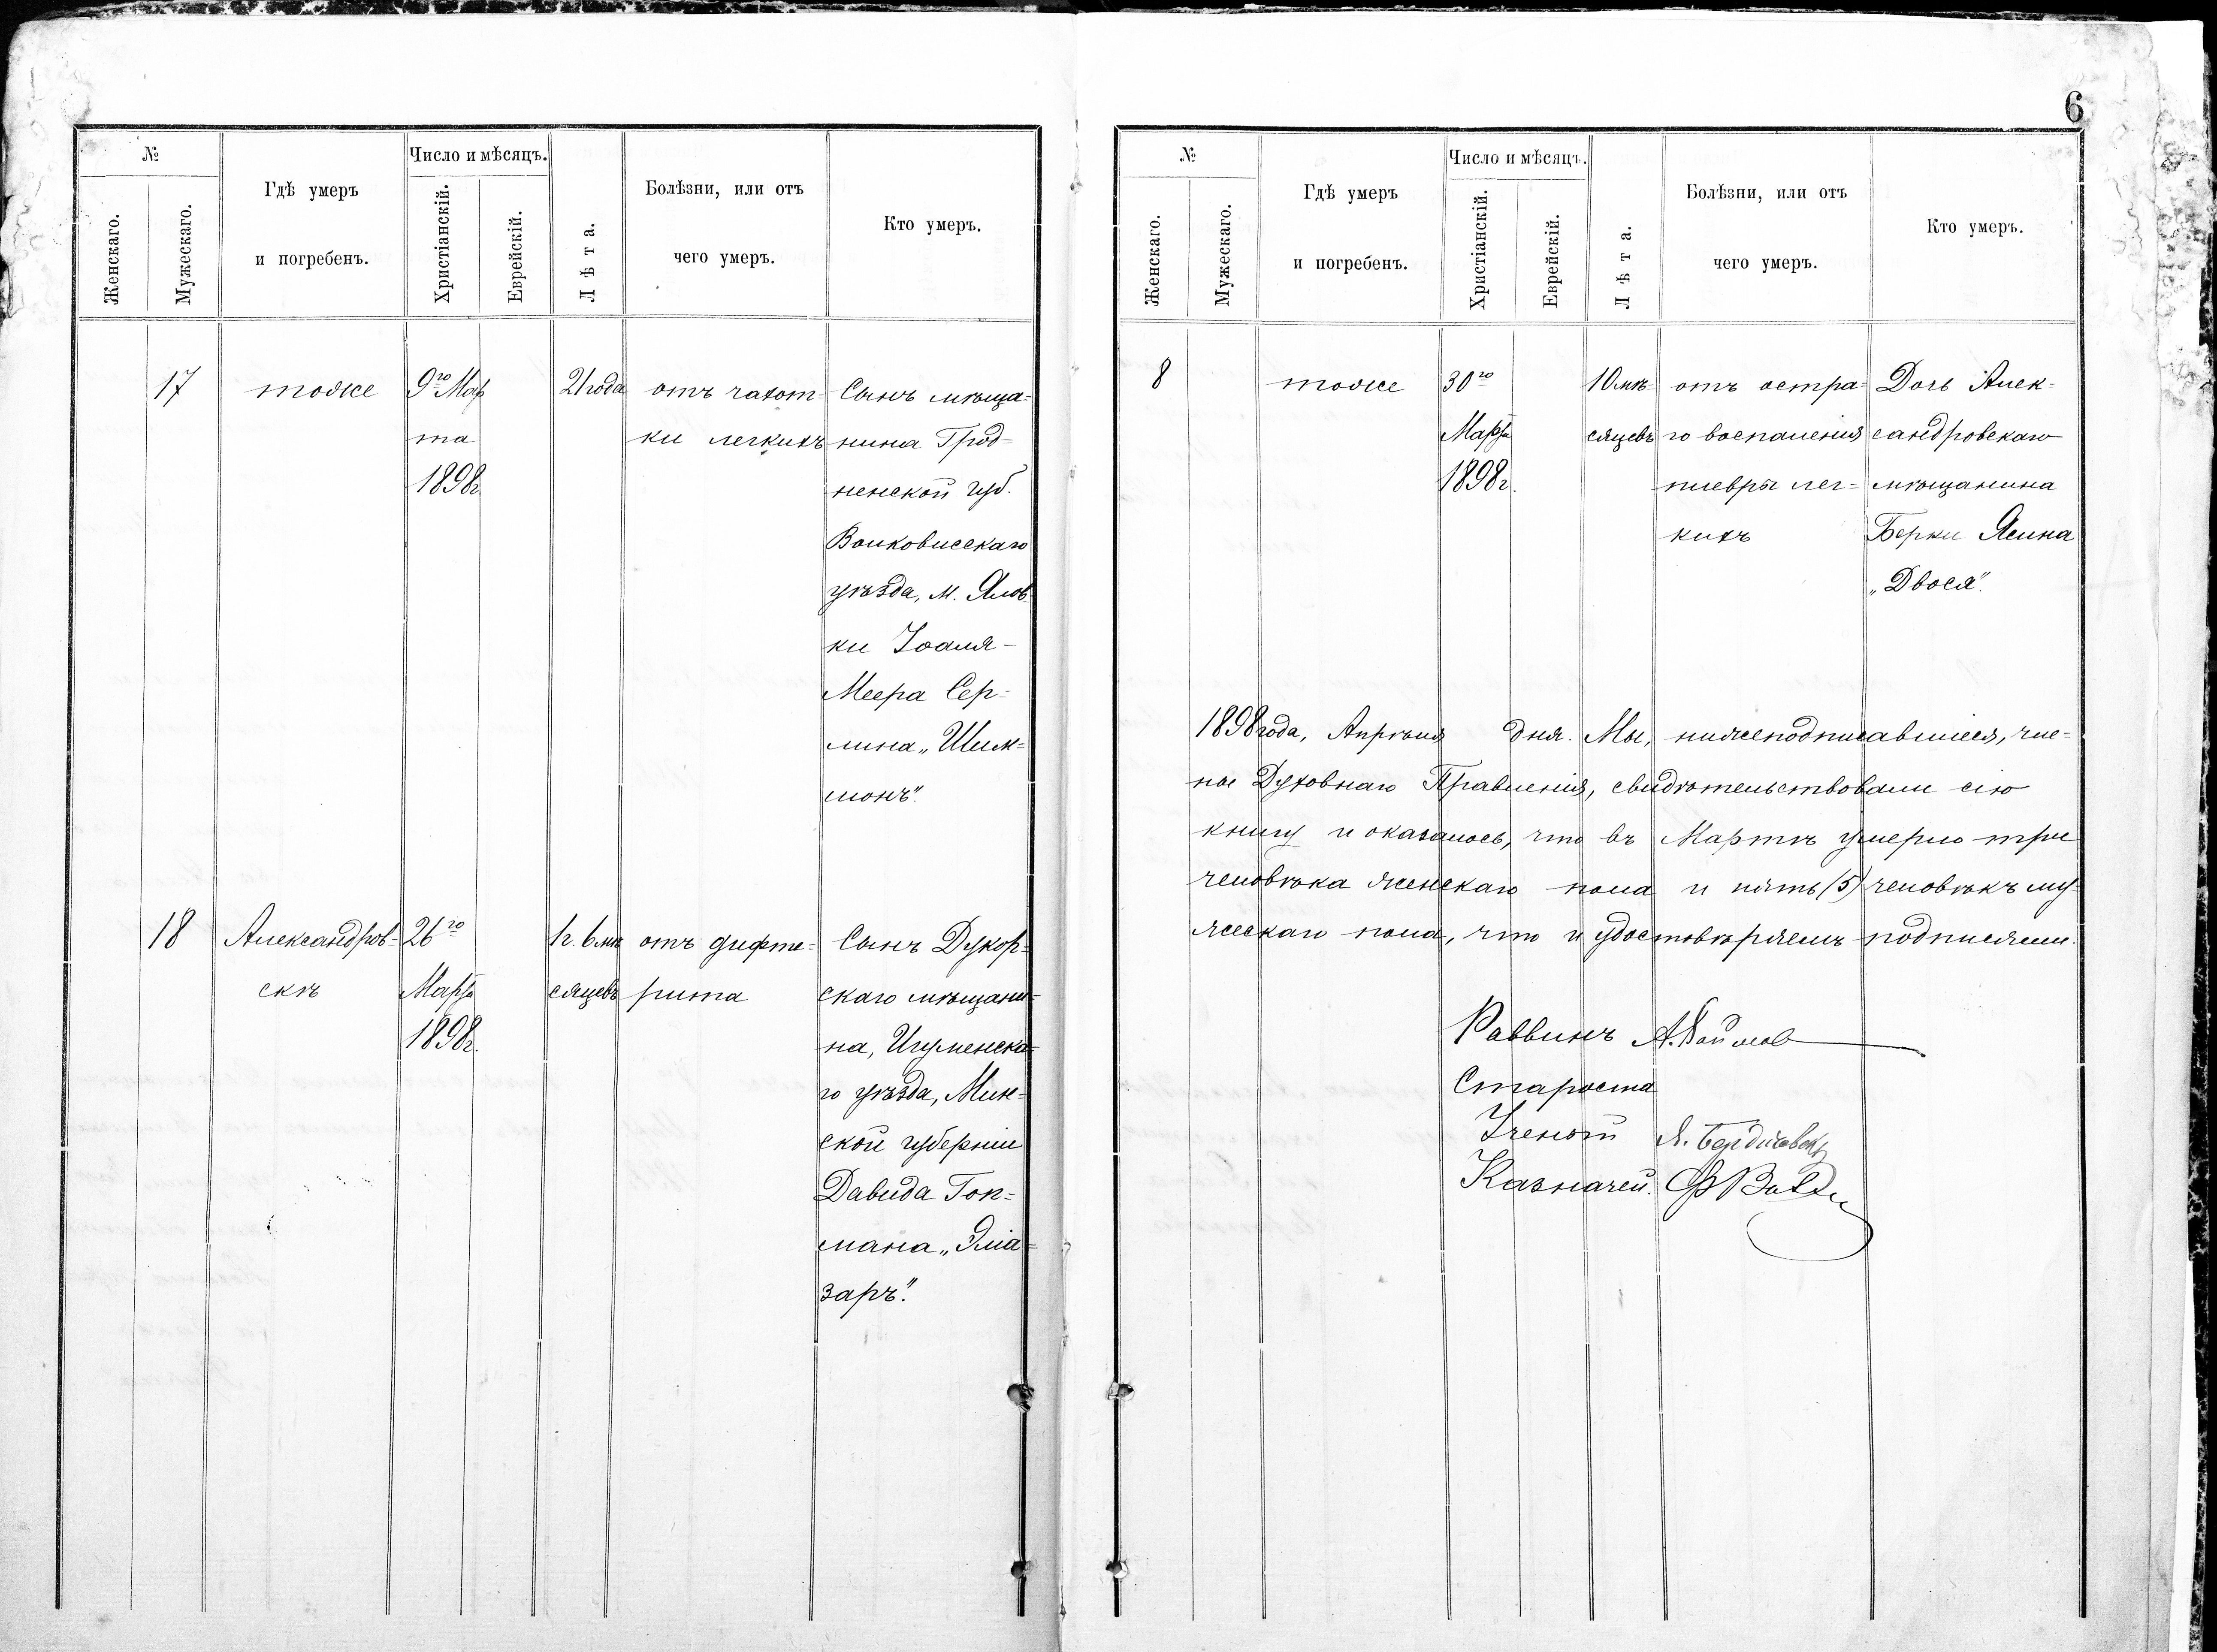 №
Женскаго.
Мужескаго.
Гдѣ умеръ
и погребенъ.
Число и мѣсяцъ.
Христіанскій.
Еврейскій.
Лѣта.
Болѣзни, или отъ
чего умеръ.
Кто умеръ.
17
тоже
9го Мар
та
1898г
21 года
отъ чахот-
ки легкихъ
Сынъ мѣща-
нина Грод-
ненской губ.
Волковисскаго
уѣзда, м. Ялов-
ки Іоаля-
Меера Сер-
лина „Шим-
монъ".
18
Александров-
скѣ
26го
Марта
1898г.
1г. 6 мѣ
сяцевъ
отъ дифте-
рита
Сынъ Дукор-
скаго мѣщани-
на, Игуменска-
го уѣзда, Мин-
ской губерніи
Давида Гок-
мана „Эліа-
заръ".
6
№
Женскаго.
Мужескаго.
Гдѣ умеръ
и погребенъ.
Число и мѣсяцъ.
Христіанскій.
Еврейскій.
Лѣта.
Болѣзни, или отъ
чего умеръ.
Кто умеръ.
8
тоже
30го
Марта
1898г.
10 мѣ-
сяцевъ
отъ остра-
го воспаленія
плевры лег-
кихъ
Дочь Алек-
сандровскаго
мѣщанина
Берки Ясина
„Двося".
1898 года, Апрѣля дня. Мы, нижеподписавшіеся, чле-
ны Духовнаго Правленія, свидѣтельствовали сію
книгу и оказалось, что въ Мартѣ умерло три
человѣка женскаго пола и пять (5) человѣкъ му-
жескаго пола, что и удостовѣряемъ подписями.
Раввинъ
Староста
Ученый Я. Бердичевск
Казначей.